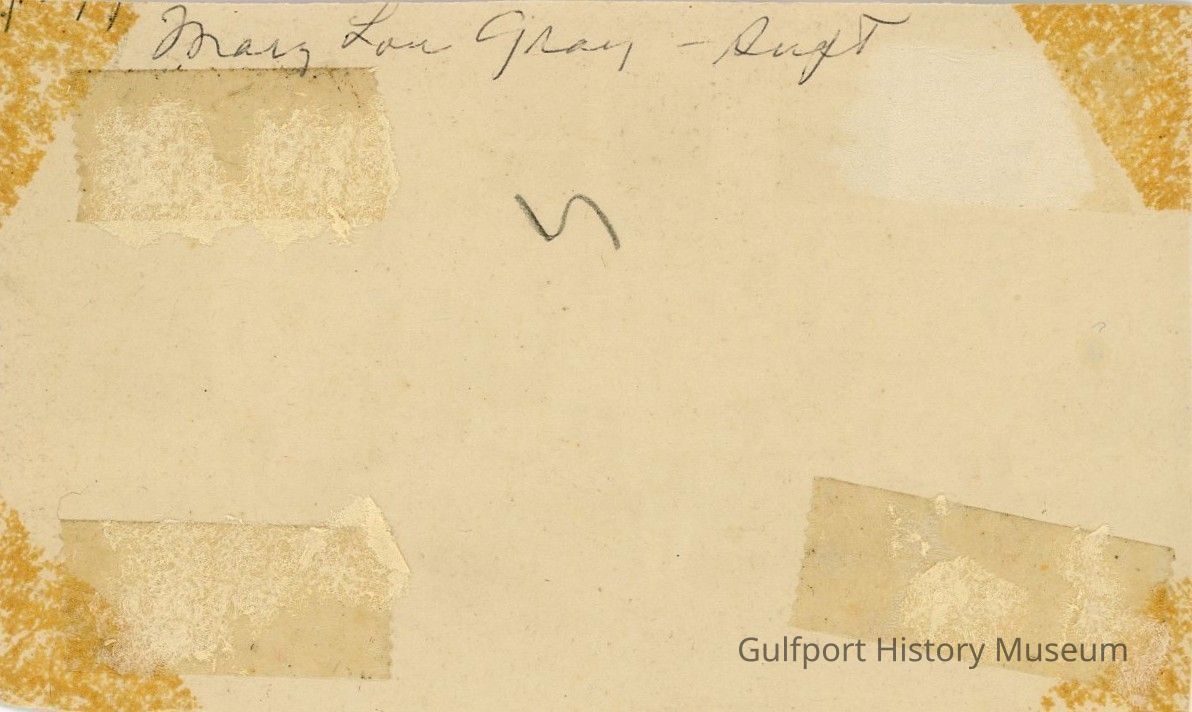 Mary Lou Gray - Supt
Gulfport History Museum